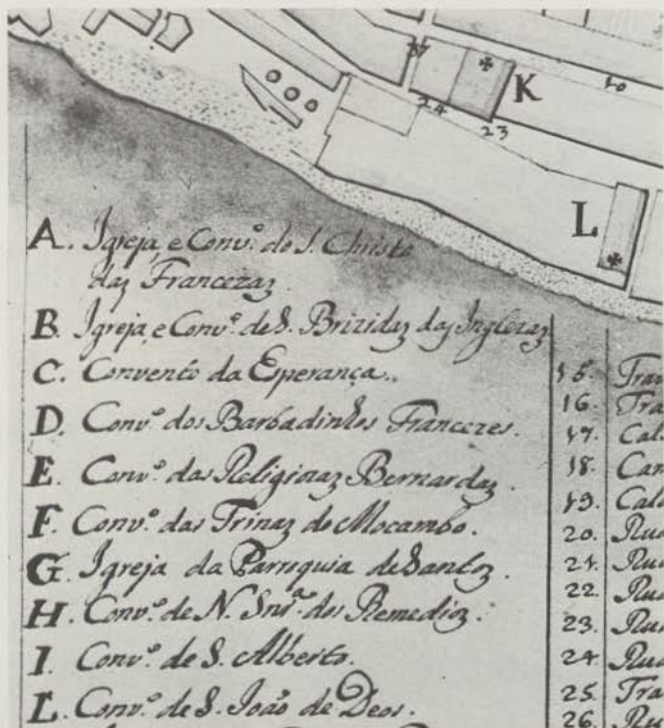 37
K
10
24
23
L
A. Igreja, e Conv.º do S. Christo
das Francezaz
B. Igreja, e Conv.º de S. Brizidaz daz Inglezaz
C. Convento da Esperança..
D. Conv.º dos Barbadinhos Francezes.
E. Conv.º das Religiozaz Bernardaz.
F. Conv.º das Trinaz do Mocambo.
G. Igreja da Parroquia de Santoz.
H. Conv.º de N. Snr.ª dos Remedioz.
I. Conv.º de S. Alberto.
L. Conv.º de S. João de Deos.
15. Trav
16. Tra
17. Cal
18. Can
19. Cal
20. Rua
21. Rua
22. Rua
23. Rua
24. Rua
25. Tra
26.